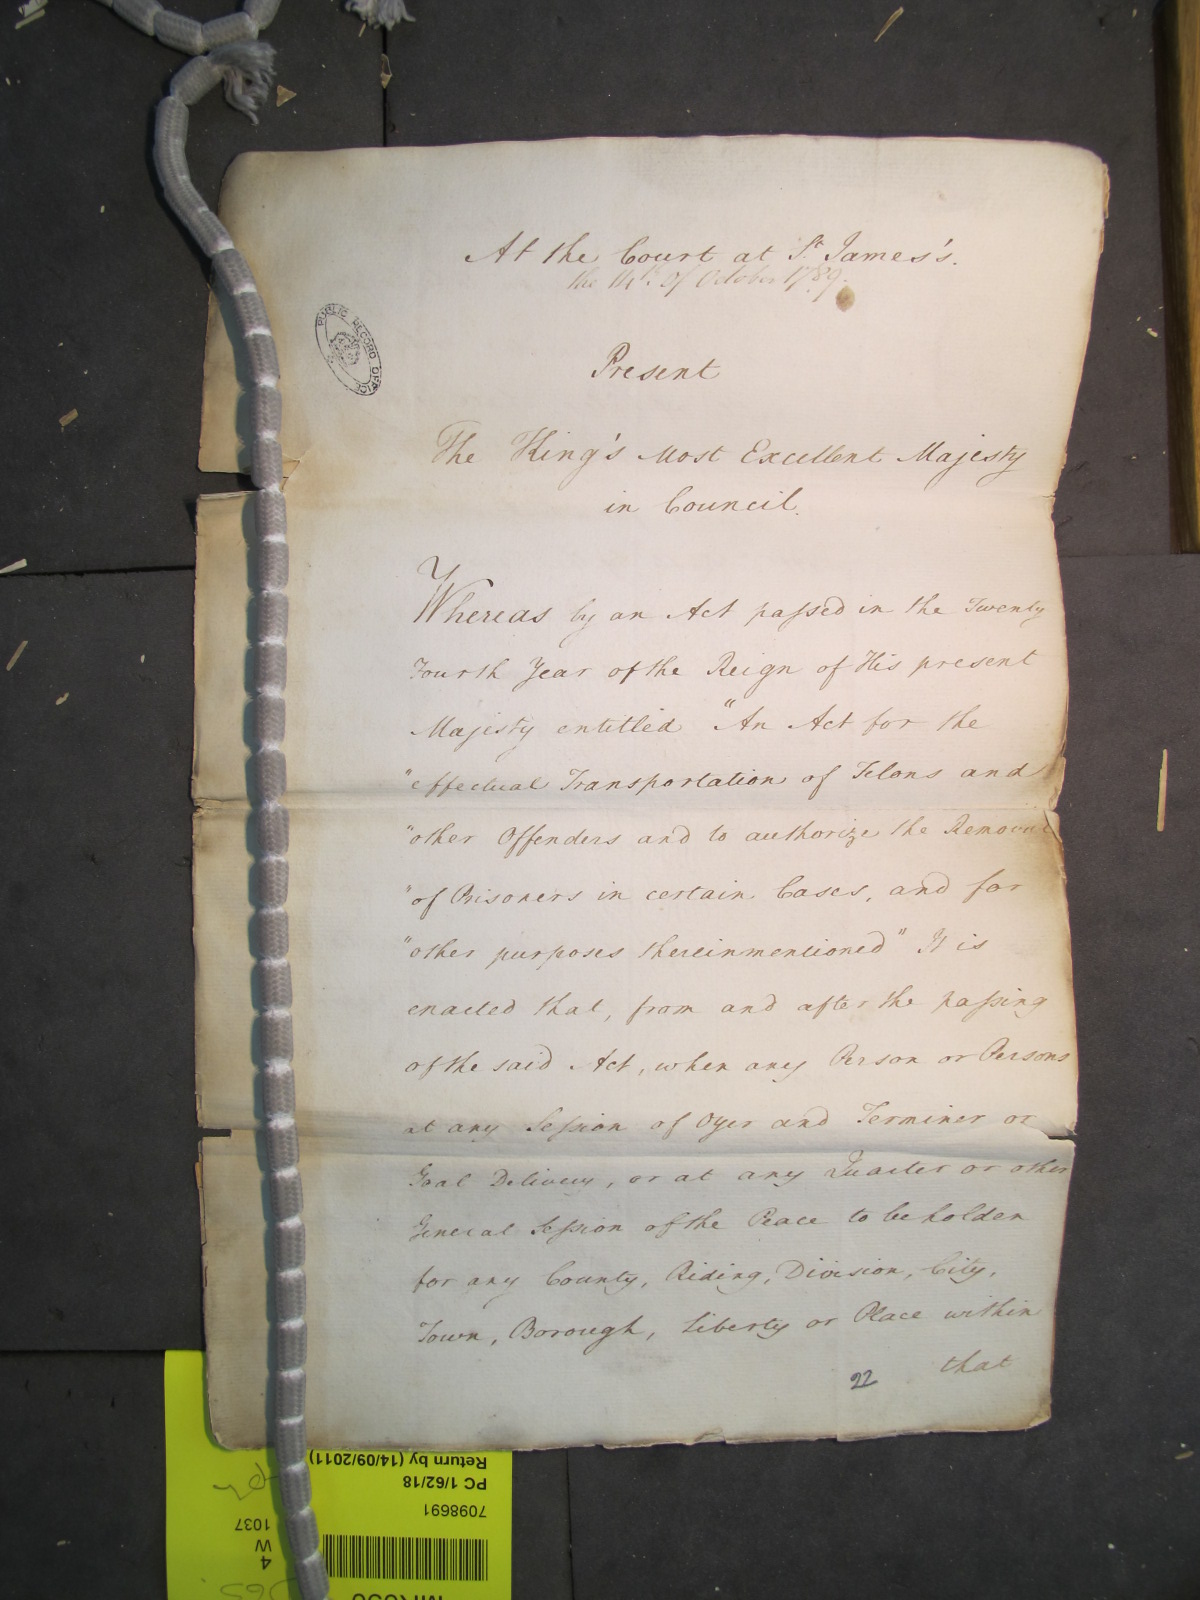 At the Court at St. James's.
the 14th. of October 1789.
PUBLIC RECORD OFFICE
Present
The King's Most Excellent Majesty
in Council.
Whereas by an Act passed in the Twenty
Fourth Year of the Reign of His present
Majesty entitled "An Act for the
"effectual Transportation of Felons and
"other Offenders and to authorize the Removal
"of Prisoners in certain Cases, and for
"other purposes thereinmentioned" It is
enacted that, from and after the passing
of the said Act, when any Person or Persons
at any Session of Oyer and Terminer or
Goal Delivery, or at any Quarter or other
General Session of the Peace to be holden
for any County, Riding, Division, City,
Town, Borough, Liberty or Place within
that
22
Return by (14/09/2011)
PC 1/62/18
7098691
1037
W
4